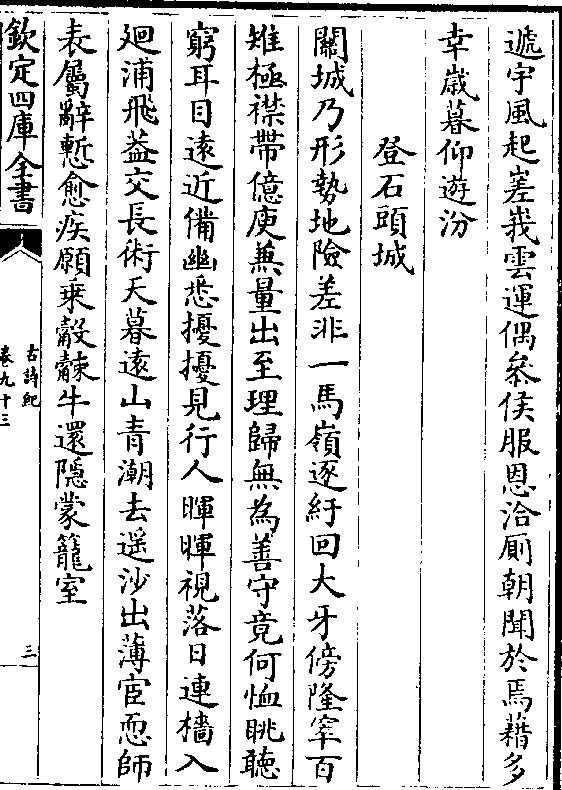 遞宇風起嵳峩雲運偶叅侯服恩洽厠朝聞於焉藉多
幸歳暮仰遊汾
登石頭城
闗城乃形勢地險差非一馬嶺逐紆回犬牙傍隆窣百
雉極襟帶億庾兼量出至理歸無為善守竟何恤眺聽
窮耳目遠近備幽悉擾擾見行人暉暉視落日連檣入
廻浦飛葢交長術天暮遠山青潮去遥沙出薄宦恧師
表屬辭慙愈疾願乗觳觫牛還隠蒙籠室
欽定四庫全書
古詩紀
卷九十三
三